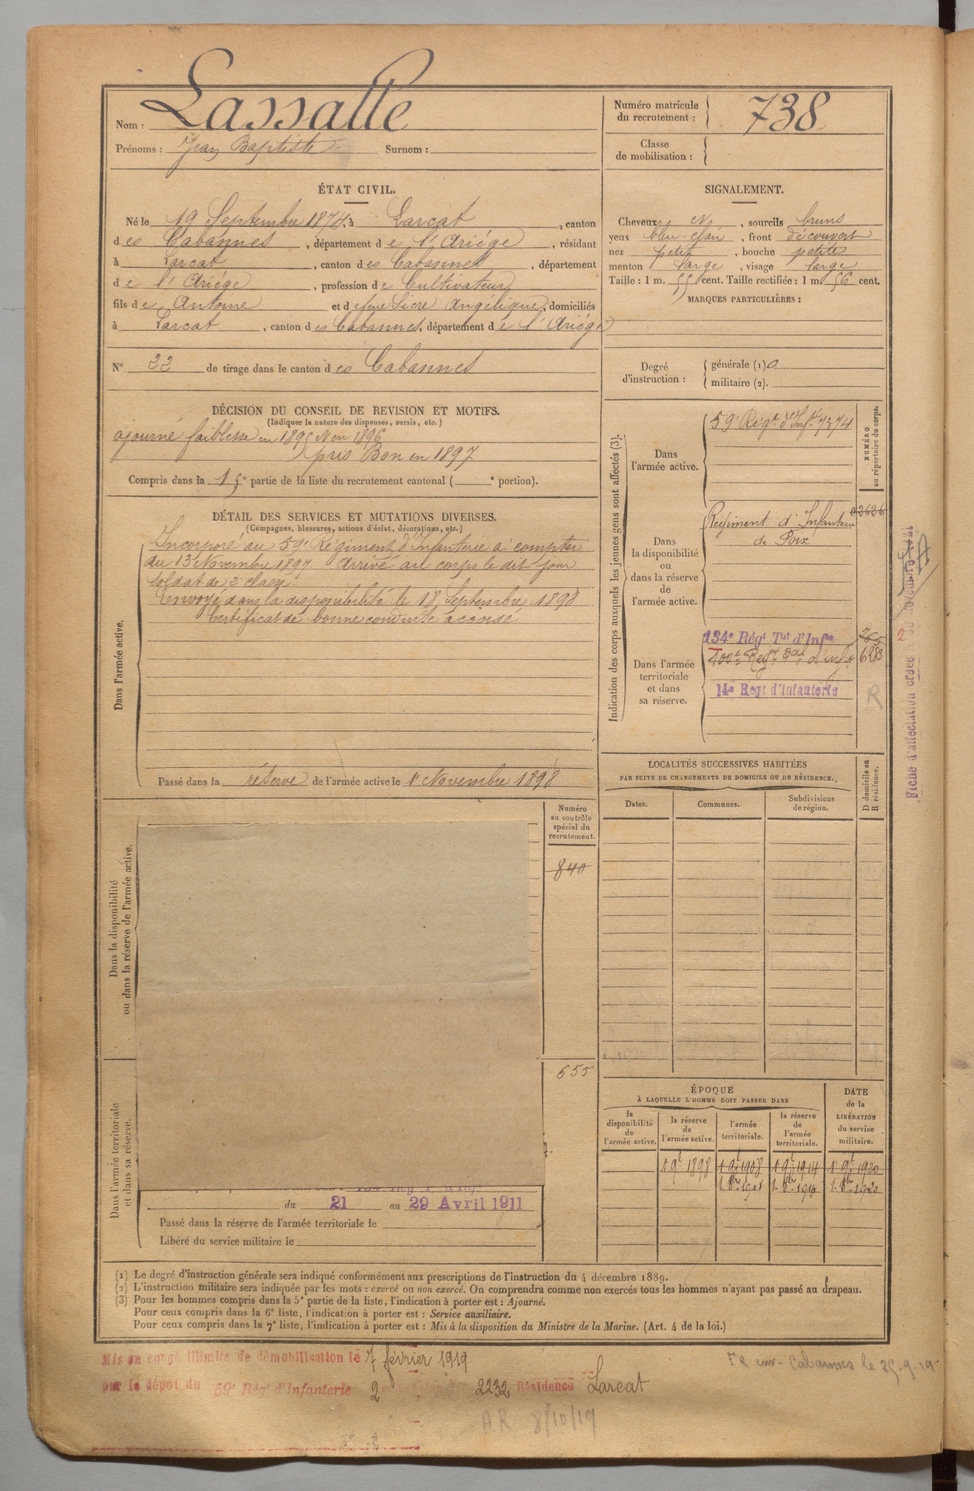 Nom : Lassalle
Prénoms : Jean Baptiste Surnom :
Numéro matricule du recrutement : 738
Classe de mobilisation :
ÉTAT CIVIL.
Né le 19 Septembre 1874, à Larcat, canton
des Cabannes, département de l'Ariège, résidant
à Larcat, canton des Cabannes, département
de l'Ariège, profession de Cultivateur
fils de Antoine et de feue Sicre Angélique, domiciliés
à Larcat, canton des Cabannes, département de l'Ariège
N° 22 de tirage dans le canton des Cabannes
SIGNALEMENT.
Cheveux , sourcils bruns
yeux bleu-clair, front découvert
nez petit, bouche petite
menton large, visage large
Taille : 1 m. 55 cent. Taille rectifiée : 1 m. 56 cent.
MARQUES PARTICULIÈRES :
Degré d'instruction : générale (1) 0
militaire (2).
DÉCISION DU CONSEIL DE REVISION ET MOTIFS.
(Indiquer la nature des dispenses, sursis, etc.)
ajourné faiblesse en 1895 et en 1896
pris Bon en 1897
Compris dans la 1e partie de la liste du recrutement cantonal ( e portion).
DÉTAIL DES SERVICES ET MUTATIONS DIVERSES.
(Campagnes, blessures, actions d'éclat, décorations, etc.)
Dans l'armée active.
Incorporé au 59e Régiment d'Infanterie à compter
du 13 Novembre 1897 Arrivé au corps le dit jour
soldat de 2e classe.
Envoyé dans la disponibilité le 18 Septembre 1898
Certificat de bonne conduite accordé
Passé dans la réserve de l'armée active le 1er Novembre 1898
Indication des corps auxquels les jeunes gens sont affectés (3).
NUMÉRO au répertoire du corps.
Dans l'armée active.
59e Régt d'Inf. 7374
Dans la disponibilité ou dans la réserve de l'armée active.
Régiment d'Infanterie
de Foix
Dans l'armée territoriale et dans sa réserve.
134e Régt Tal d'Infie
14e Regt d'Infanterie
R
LOCALITÉS SUCCESSIVES HABITÉES
PAR SUITE DE CHANGEMENTS DE DOMICILE OU DE RÉSIDENCE.
D domicile ou R résidence.
Dates. Communes. Subdivisions de région.
Dans la disponibilité ou dans la réserve de l'armée active.
Numéro au contrôle spécial du recrutement.
840
655
Dans l'armée territoriale et dans sa réserve.
du 21 au 29 Avril 1911
Passé dans la réserve de l'armée territoriale le
Libéré du service militaire le
ÉPOQUE
À LAQUELLE L'HOMME DOIT PASSER DANS
DATE de la LIBÉRATION du service militaire.
la disponibilité de l'armée active.
la réserve de l'armée active.
l'armée territoriale.
la réserve de l'armée territoriale.
(1) Le degré d'instruction générale sera indiqué conformément aux prescriptions de l'instruction du 4 décembre 1889.
(2) L'instruction militaire sera indiquée par les mots : exercé ou non exercé. On comprendra comme non exercés tous les hommes n'ayant pas passé au drapeau.
(3) Pour les hommes compris dans la 5e partie de la liste, l'indication à porter est : Ajourné.
Pour ceux compris dans la 6e liste, l'indication à porter est : Service auxiliaire.
Pour ceux compris dans la 7e liste, l'indication à porter est : Mis à la disposition du Ministre de la Marine. (Art. 4 de la loi.)
Mis en congé illimité de démobilisation le 7 février 1919
par le dépôt du 59e Régt d'Infanterie 2 2232 Résidence Larcat
A.R 8/10/19